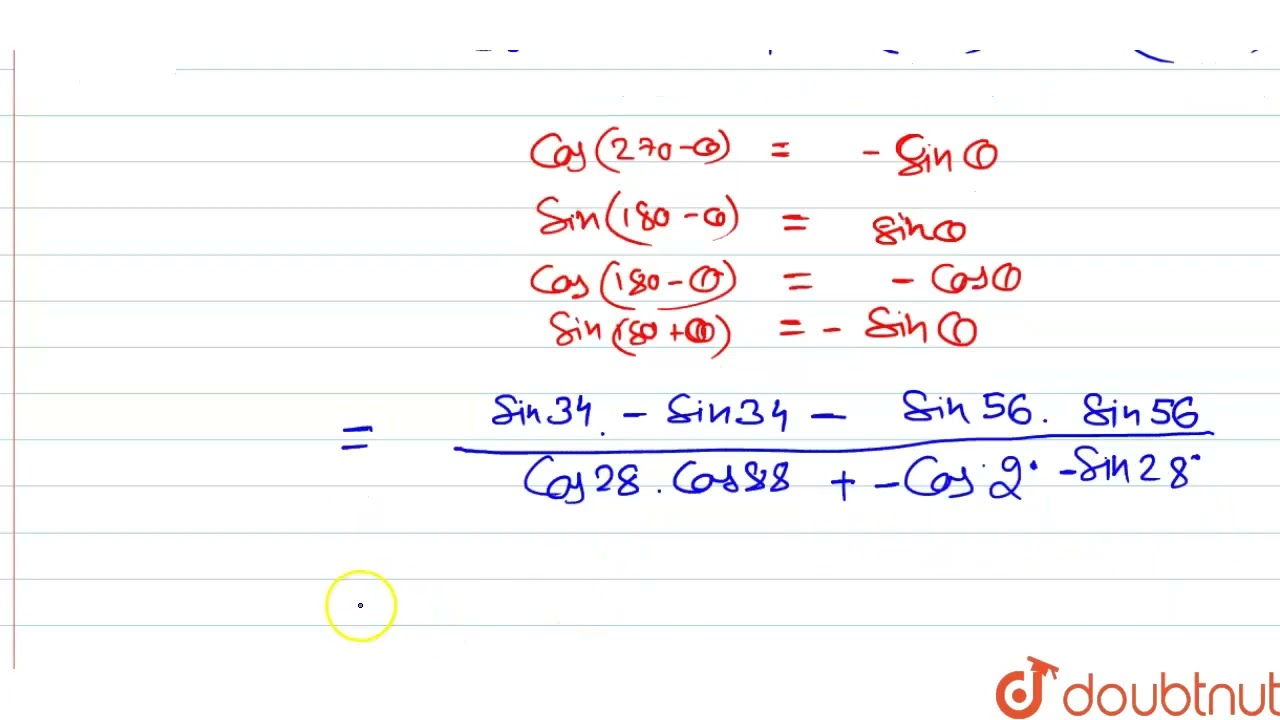 Cos(270-θ) = - Sin θ
Sin(180-θ) = sinθ
Cos(180-θ) = - Cosθ
Sin(180+θ) = - Sin θ
= Sin34. - Sin34 - Sin56. Sin56
Cos28. Cos88 + - Cos 2° - Sin28°
doubtnut